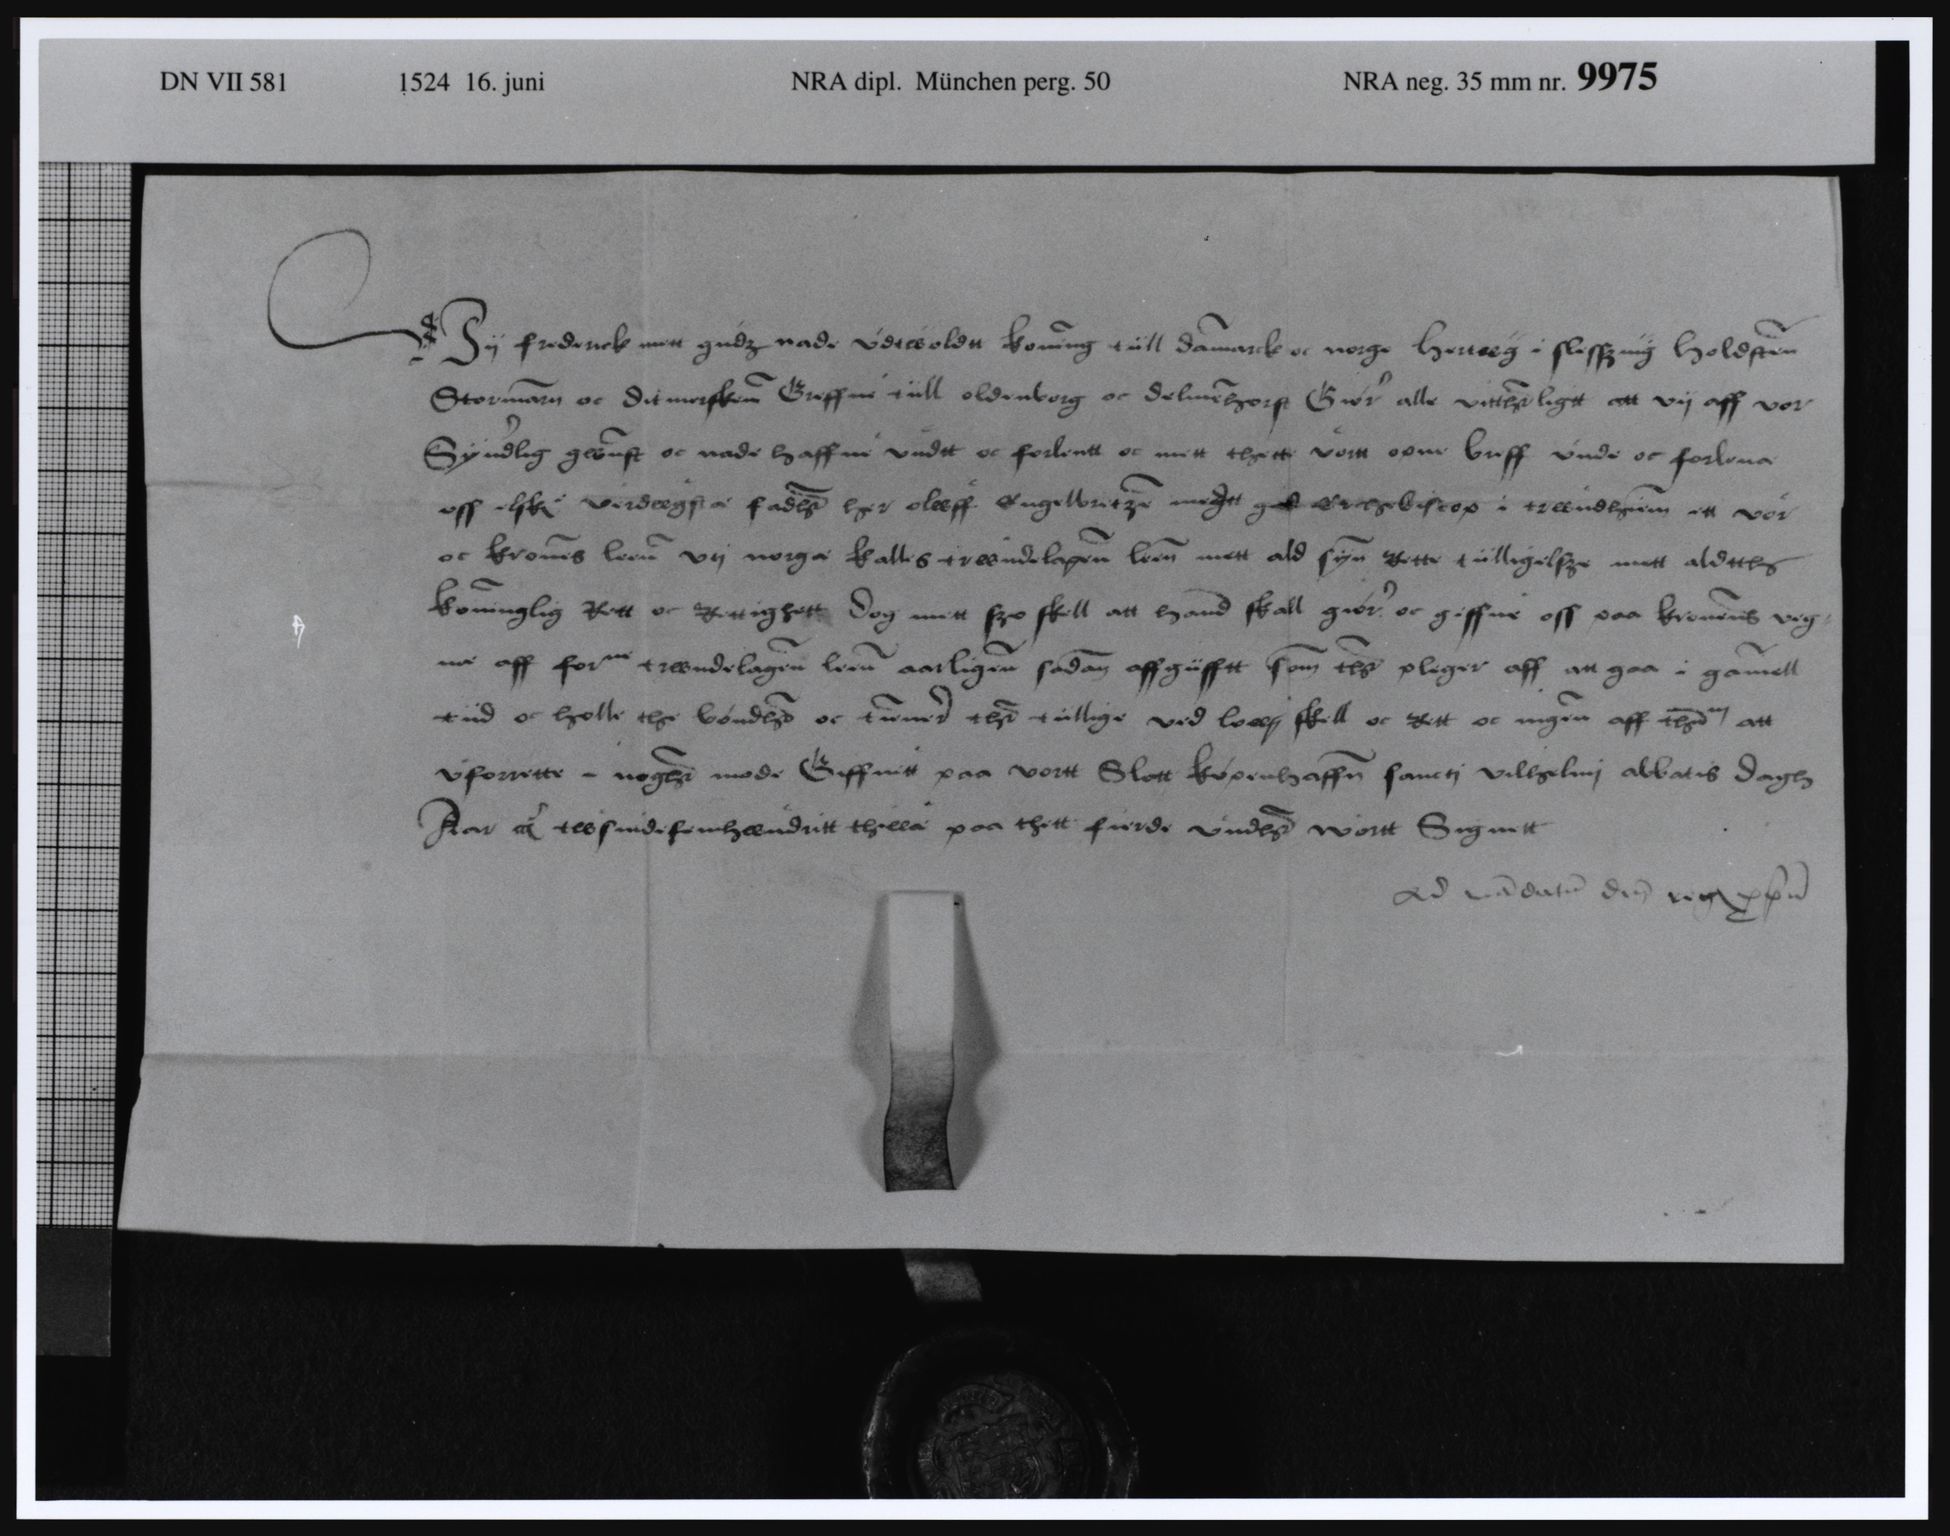 DN VII 581 1524 16. juni NRA dipl. München perg. 50 NRA neg. 35 mm nr. 9975
Vij frederick mett gudz nade vdtwoldtt koning tiill danmarck oc norge hertwg i slesszuig holdstēn
Stormarn oc ditmerskenn Greffue tiill oldenborg oc delmēhorst Giør alle vitthrligtt att vij aff vor
Syndrlig gwnst oc nade haffue vndtt oc forlentt oc mett thette vortt opne breff vnde oc forlena
oss elskᵉ verdwgste fadhr her olwff Engelbretzēn mett gud Erchebiscop i trwndhiem ett vor
oc kronēs leen vtj norge kalles trwndelagēn leen mett ald syn Rette tiilligelsze mett aldtth
koninglig Rett oc Rettighett dog mett szo skell att hand skall giør oc giffue oss paa kronens veg-
ne aff forne trwndelagēn leen aarligen sadan affgiifftt som thr pleger aff att gaa i gamell
tiid oc holle the bøndhr oc tienner thr tiillige ved lwej skell oc Rett oc ingen aff thm att
vforrette i noghr mode Giffuitt paa vortt Slott køpenhaffn sanctj vilhelmj abbatis dagh
Aar etc twsindefemhwndritt thiwe paa thett fierde vndhr wortt Signett
Ad mādatū dnj reg ppriū